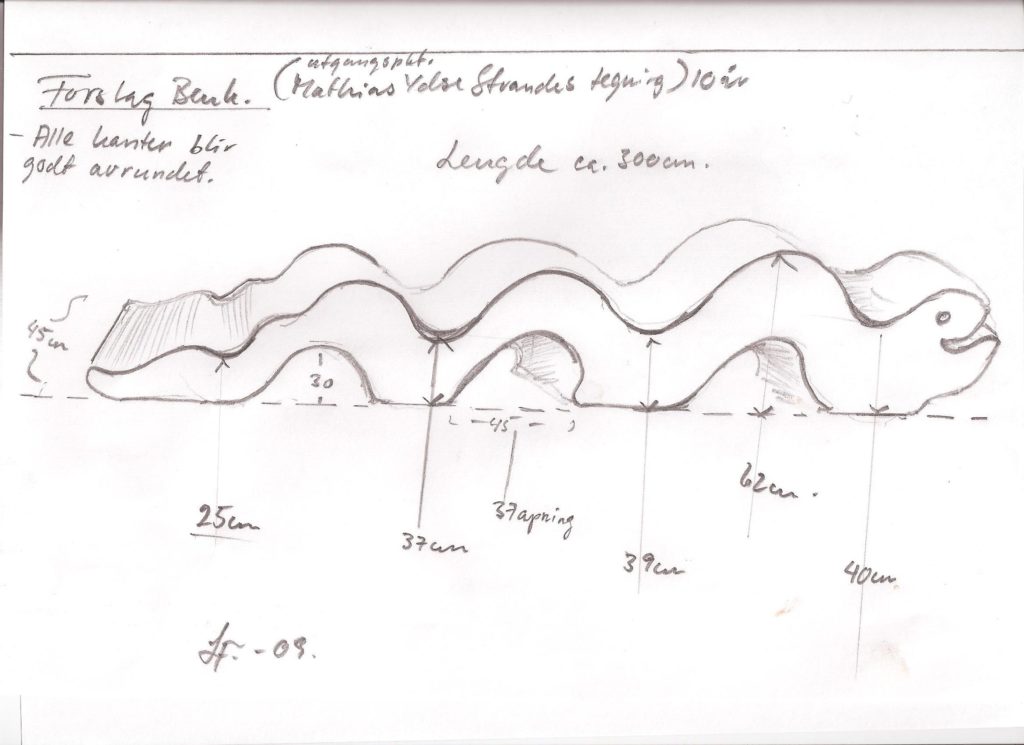 utgangspkt.
Forslag Benk. (Mathias Ydse Strandes tegning) 10 år
- Alle kanter blir
godt avrundet.
Lengde ca. 300cm.
45cm
30
45
37 åpning
62cm.
25cm
37cm
39cm
40cm
-09.